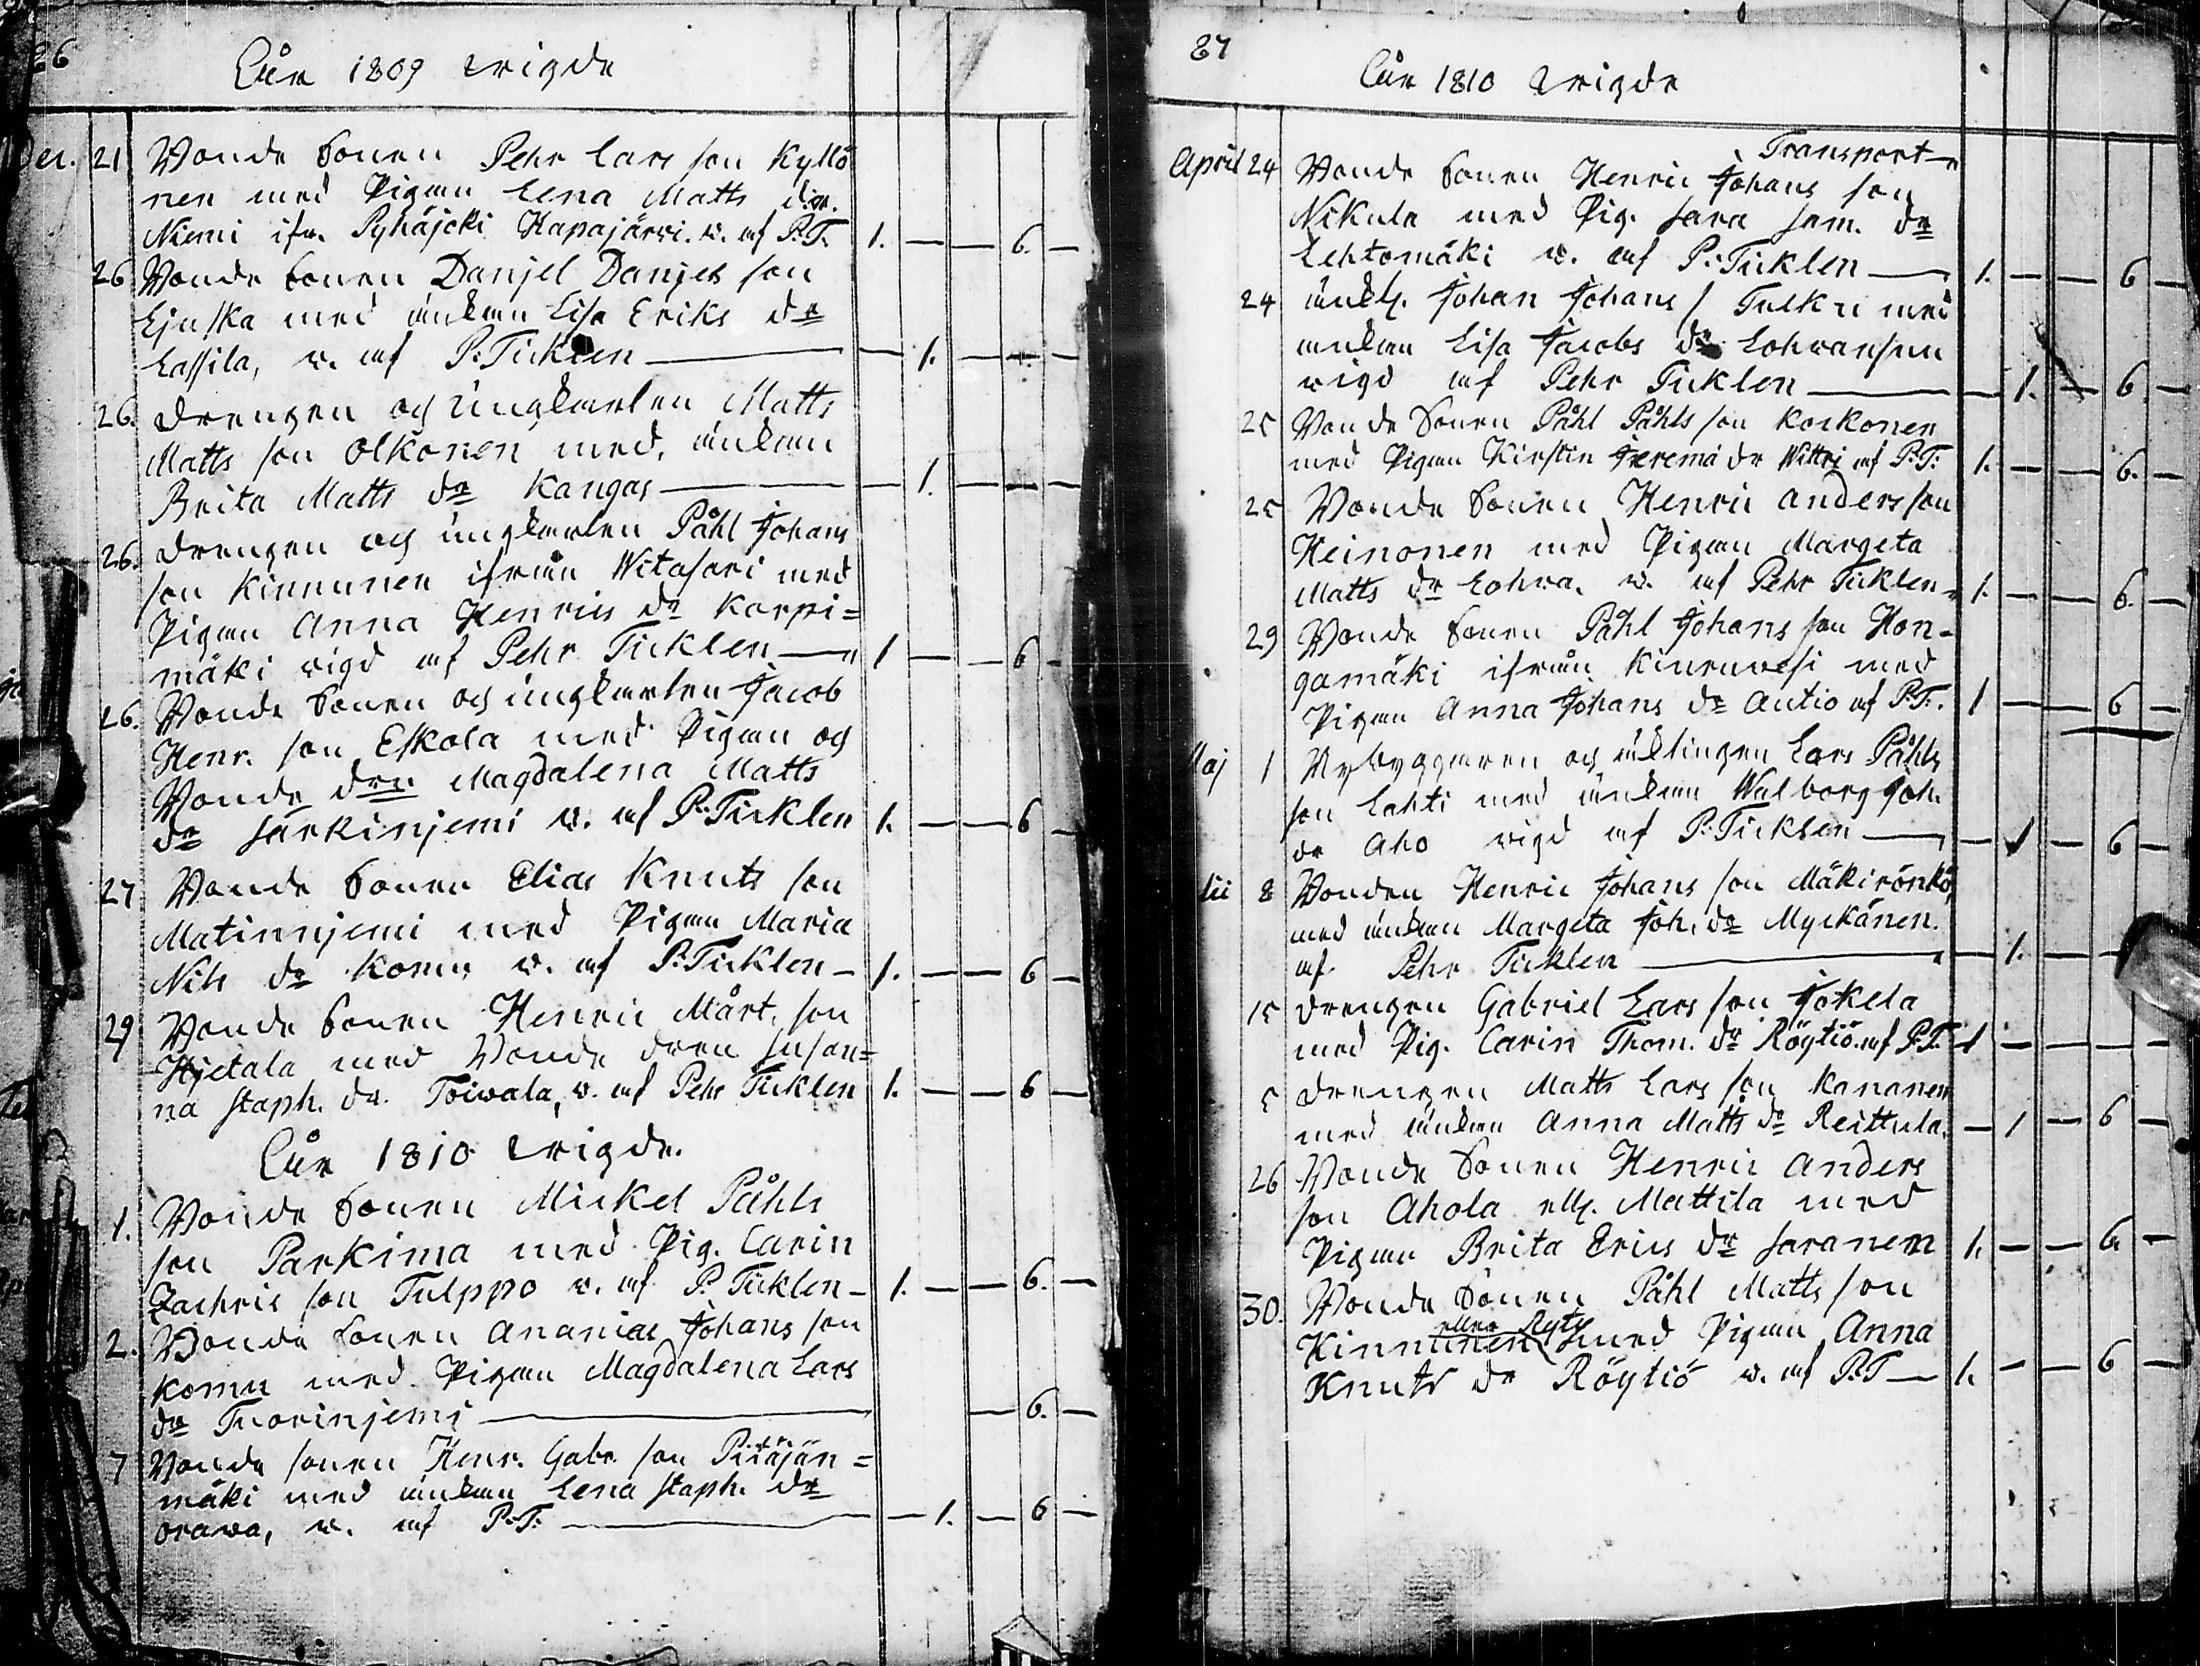 86
Åår 1809 wigde
Dec. 21 Bonde Sonen Pehr Lars son Kyllö
nen med Pigan Lena Matts dr.
Niemi ifr. Pyhäjoki Hapajärwi. w. af P:T. 1. — — 6. —
26 Bonde Sonen Danjel Danjels son
Ljuska med änkan Lisa Eriks dr
Lassila, w. af P:Ticklen — — 1. — —
26. Drengen och Ungkarlen Matts
Matts son Olkonen med, änkan
Brita Matts dr Kangas — — 1. — —
26. Drengen och ungkarlen Påhl Johans
son Kinnunen ifrån Witasari med
Pigan Anna Henrics dr Karpi=
mäki wigd af Pehr Ticklen — 1 — — 6 -
26. Bonde Sonen och ungkarlen Jacob
Henr. son Eskola med Pigan och
Bonde drn Magdalena Matts
dr Särkinjemi w. af P:Ticklen 1. — — 6 —
27 Bonde Sonen Elias Knuts son
Matinnjemi med Pigan Maria
Nils dr Komu w. af P:Ticklen - 1. — — 6 —
29 Bonde Sonen Henric Mårt. son
Hjetala med Bonde dren Susan=
na Staph. dr. Toiwala, w. af Pehr Ticklen 1. — — 6 —
Åår 1810 wigde.
1. Bonde Sonen Mickel Påhls
son Parkima med Pig. Carin
Zachris son Tulppo w. af P. Ticklen - 1. — — 6. —
2. Bonde Sonen Ananias Johans son
Komu med Pigan Magdalena Lars
dr Tuorinjemi — — 6. —
7 Bonde sonen Henr. Gabr. son Pitäjän=
mäki med änkan Lena Staph. dr
Orawa, w. af P:T: — — 1. — 6 —
87
Åår 1810 wigde
Transport
April 24 Bonde Sonen Henric Johans son
Nikula med Pig. Sara Sam. dr
Lehtomäki w. af P:Ticklen — 1. — — 6 —
24 änkl. Johan Johans / Tulku med
ankan Lisa Jacobs dr Lohwansuu
wigd af Pehr Ticklen — — 1. — 6 —
25 Bonde Sonen Påhl Påhls son Koskonen
med Pigan Kirstin Jeremä dr Wittoi af P:T: 1. — — 6. —
25 Bonde Sonen Henric Anders son
Heinonen med Pigan Margeta
Matts dr Lohwa. w. af Pehr Ticklen 1. — — 6. —
29 Bonde Sonen Påhl Johans son Hon-
gamäki ifrån Kiuruwesi med
Pigan Anna Johans dr Autio af P:T. 1 — — 6 —
Maj 1 Nybyggaren och änklingen Lars Påhls
son Lahti med änkan Walborg Joh.
dr Aho wigd af P:Ticklen — — 1 — 6 —
8 Bonden Henric Johans son Mäkirönkö
med änkan Margeta Joh. dr Myckänen.
af Pehr Ticklen — — 1. — —
15 Drengen Gabriel Lars son Jokela
med Pig. Carin Thom. dr Röytiö af P:T. 1 — — — —
5 Drengen Matts Lars son Kananen
med änkan Anna Matts dr Reittula. — 1 — 6 —
26 Bonde Sonen Henric Anders
son Ahola ell. Mattila med
Pigan Brita Erics dr Saranen 1. — — 6. —
30. Bonde Sonen Påhl Matts son
eller Ryty
Kinnunen med Pigan Anna
Knuts dr Röytiö w. af P:T — 1. — — 6 —